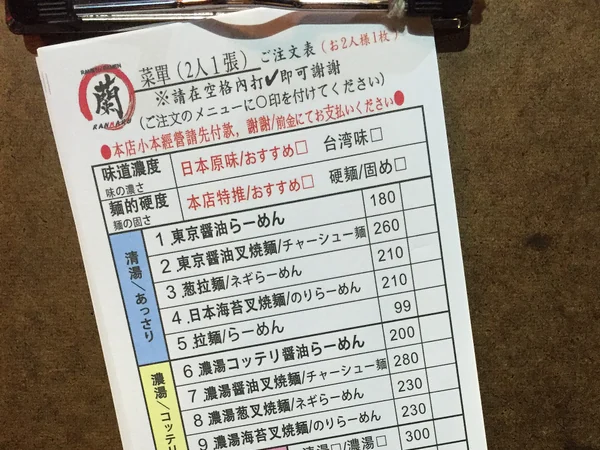 菜單(2人1張) ご注文表(お2人様1枚)
※請在空格內打✔即可謝謝
(ご注文のメニューに○印を付けてください)
蘭
●本店小本經營請先付款,謝謝/前金にてお支払いください●
味道濃度 日本原味/おすすめ□ 台湾味□
味の濃さ
麵的硬度 本店特推/おすすめ□ 硬麵/固め□
麵の固さ
清湯/あっさり
1 東京醬油らーめん 180
2 東京醬油叉焼麵/チャーシュー麵 260
3 葱拉麵/ネギらーめん 210
4 日本海苔叉焼麵/のりらーめん 210
5 拉麵/らーめん 99
濃湯/コッテリ
6 濃湯コッテリ醬油らーめん 200
7 濃湯醬油叉焼麵/チャーシュー麵 280
8 濃湯葱叉焼麵/ネギらーめん 230
9 濃湯海苔叉焼麵/のりらーめん 230
清湯□/濃湯□ 300